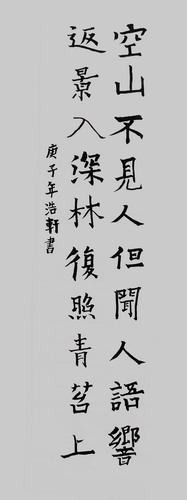 空山不見人但聞人語響
返景入深林復照青苔上
庚子年浩軒書